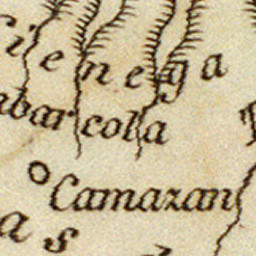 Cienega
barcola
Camazan
as